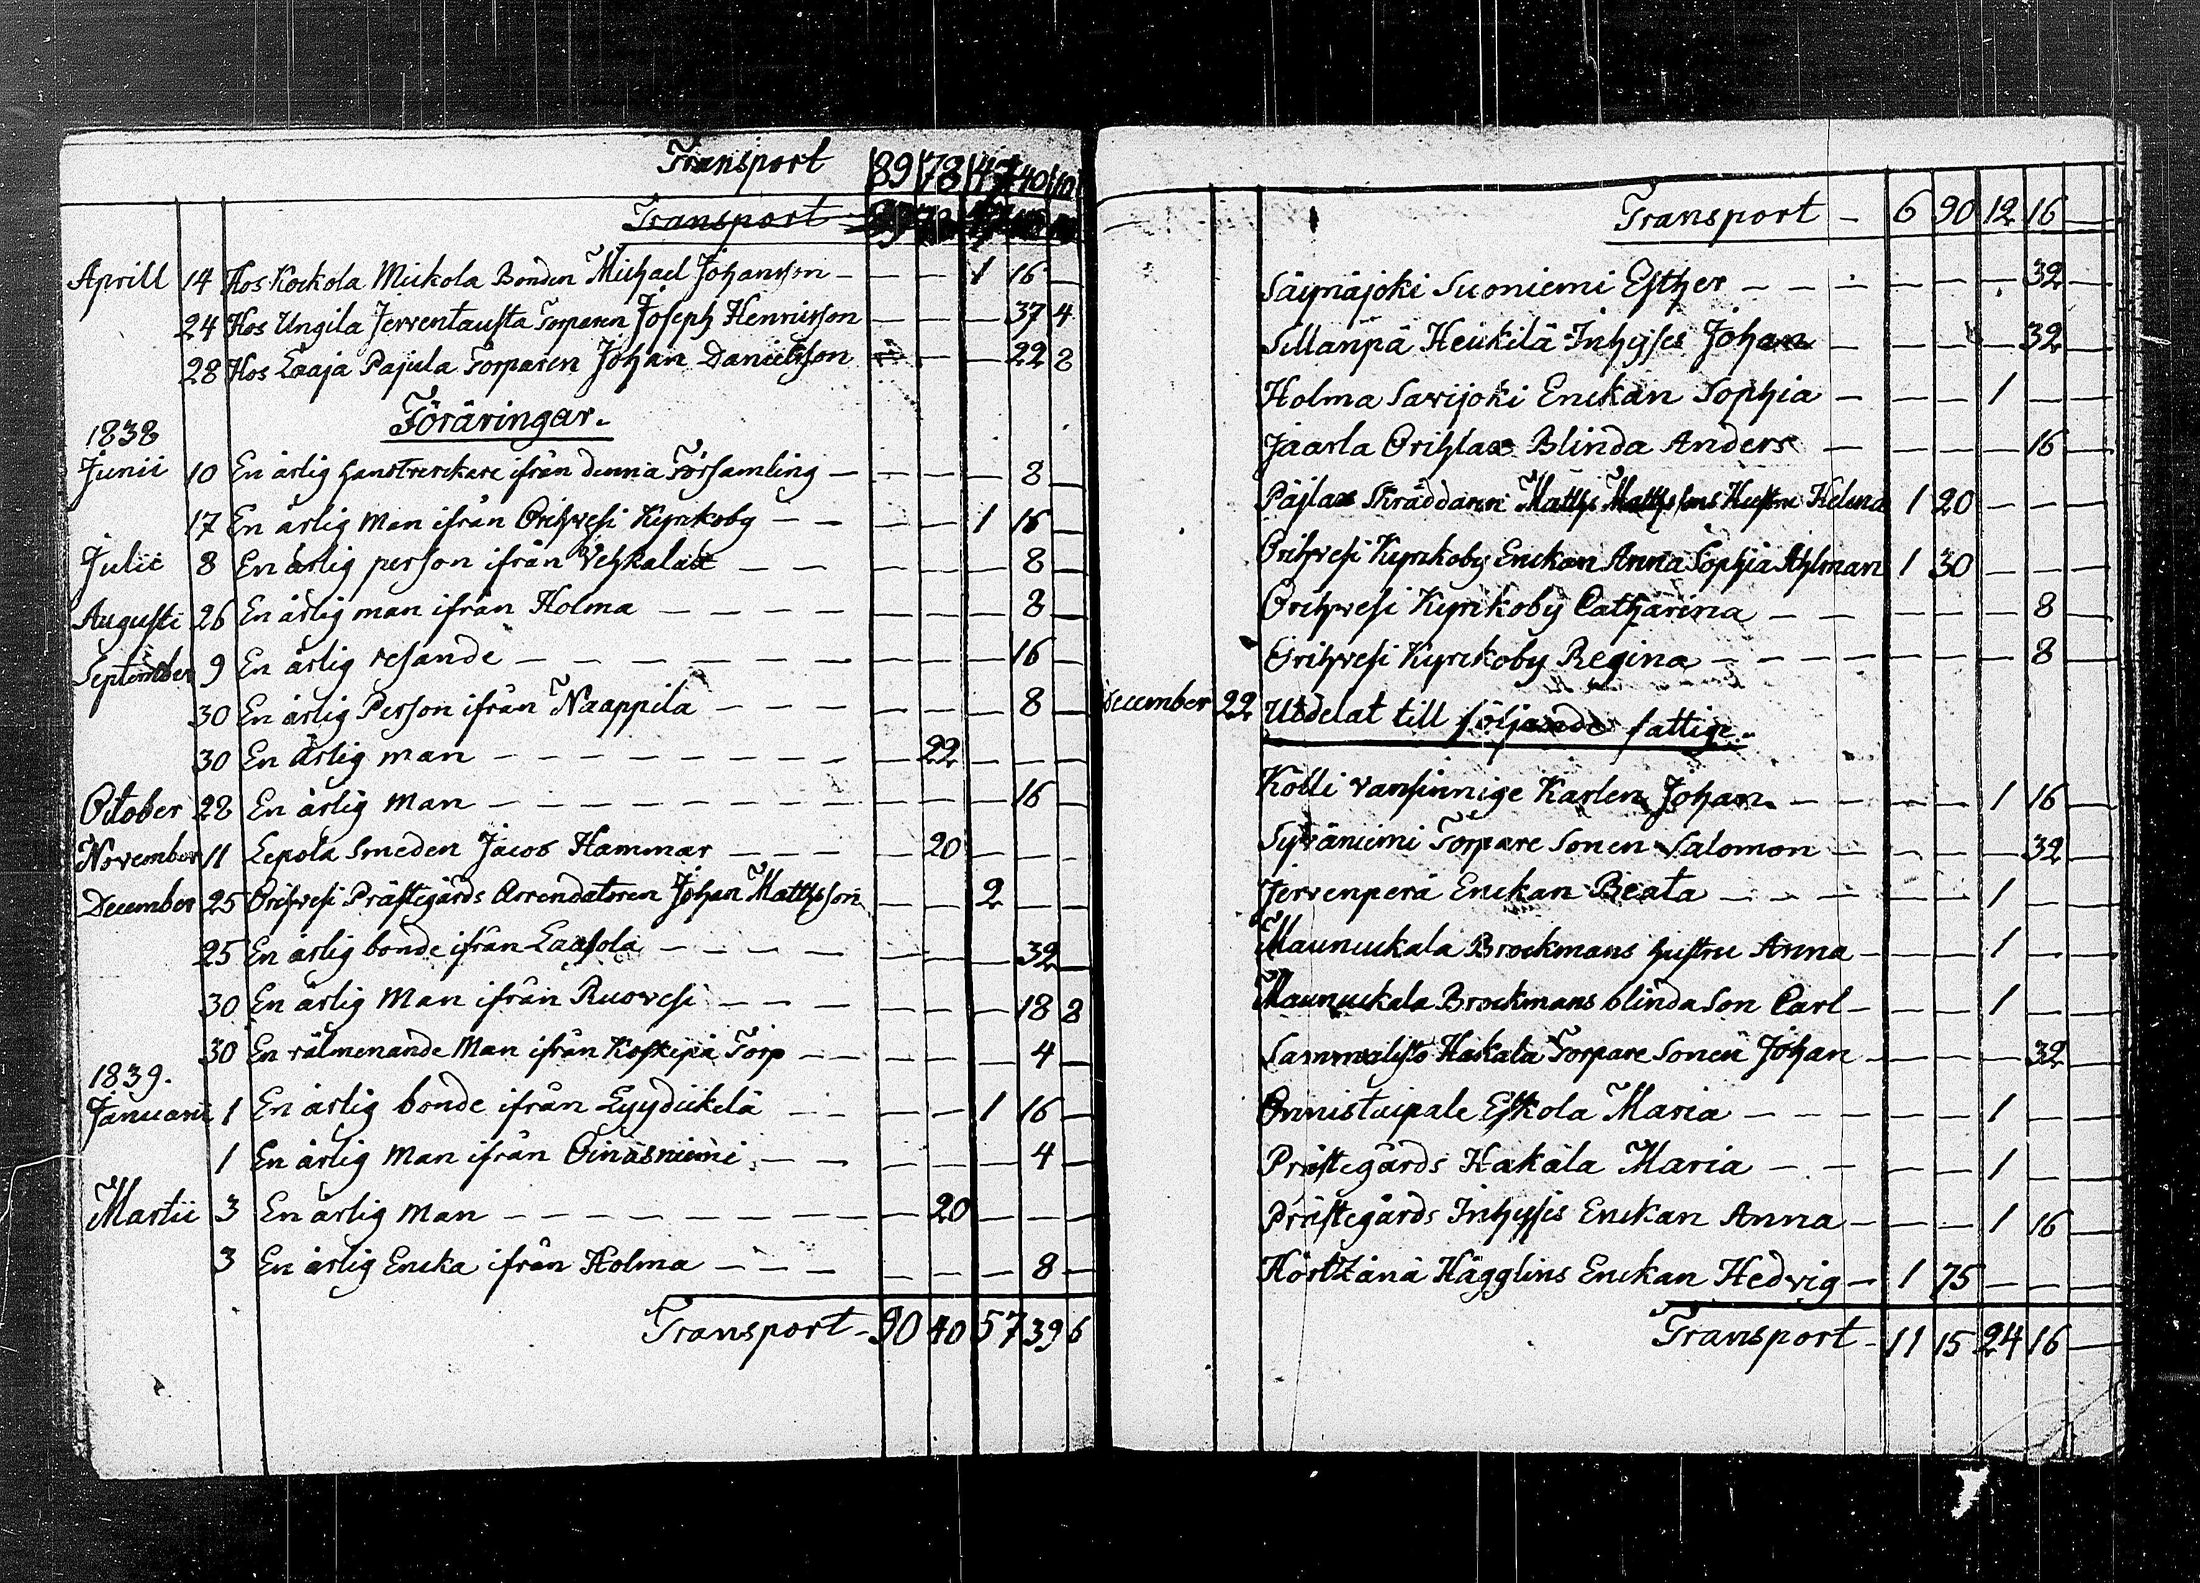 Transport 89 78 47 40 10
Transport
Aprill 14 Hos Kockola Mickola Bonden Michael Johansson — — — 1 16 —
24 Hos Ungila Jerventausta Torparen Joseph Henricsson — — — 37 4
28 Hos Laaja Pajula Torparen Johan Danielsson — — — 22 8
Föräringar.
1838
Junii 10 En ärlig hanstverckare ifrån denna Församling — — — — 8 —
17 En ärlig Man ifrån Orihvesi Kyrkoby — — — — 1 16 —
Julii 8 En ärlig person ifrån Vehkalax — — — — — 8 —
Augusti 26 En ärlig man ifrån Holma — — — — — — — 8 —
September 9 En ärlig resande — — — — — — — — — — 16 —
30 En ärlig Person ifrån Naappila — — — — — — 8 —
30 En ärlig man — — — — — — — — — 22 — — —
October 28 En ärlig Man — — — — — — — — — — — 16 —
November 11 Lepola Smeden Jacob Hammar — — — — 20 — — —
December 25 Orihvesi Prästegårds Arrendatoren Johan Matthsson — — 2 — —
25 En ärlig bonde ifrån Laasola — — — — — — — 32 —
30 En ärlig Man ifrån Ruovesi — — — — — — 18 8
30 En välmenande Man ifrån Koskipä Torp — — — — — 4 —
1839.
Januarii 1 En ärlig bonde ifrån Lyydickelä — — — — 1 16 —
1 En ärlig Man ifrån Oinasniemi — — — — — 4 —
Martii 3 En ärlig Man — — — — — — — — — 20 — — —
3 En ärlig Encka ifrån Holma — — — — — — 8 —
Transport — 90 40 57 39 6
Transport — 6 90 12 16 —
Säynäjoki Suoniemi Esther — — — — — — 32 —
Sillanpä Heickilä Inhyses Johan — — — — 32 —
Holma Savijoki Enckan Sophia — — — 1 — —
Jaarla Orihlax Blinda Anders — — — — 16 —
Päjlax Skräddaren Matths Matthssons Hustru Helena 1 20 — — —
Orihvesi Kyrckoby Enckan Anna Sophia Ahlman 1 30 — — —
Orihvesi Kyrckoby Catharina — — — — — 8 —
Orihvesi Kyrckoby Regina — — — — — — — 8 —
December 22 Utdelat till följande fattige.
Kolli vansinnige Karlen Johan — — — — 1 16 —
Syväniemi Torpare Sonen Salomon — — — — 32 —
Jervenperä Enckan Beata — — — — — — 1 — —
Maunuckala Brockmans hustru Anna — — — 1 — —
Maunuckala Brockmans blinda Son Carl — — — 1 — —
Sammalisto Hakala Torpare Sonen Johan — — — — 32 —
Onnistaipale Eskola Maria — — — — — — 1 — —
Prästegårds Hakala Maria — — — — — 1 — —
Prästegårds Inhyses Enckan Anna — — — 1 16 —
Hörtzänä Hägglins Enckan Hedvig — 1 75 — — —
Transport — 11 15 24 16 —